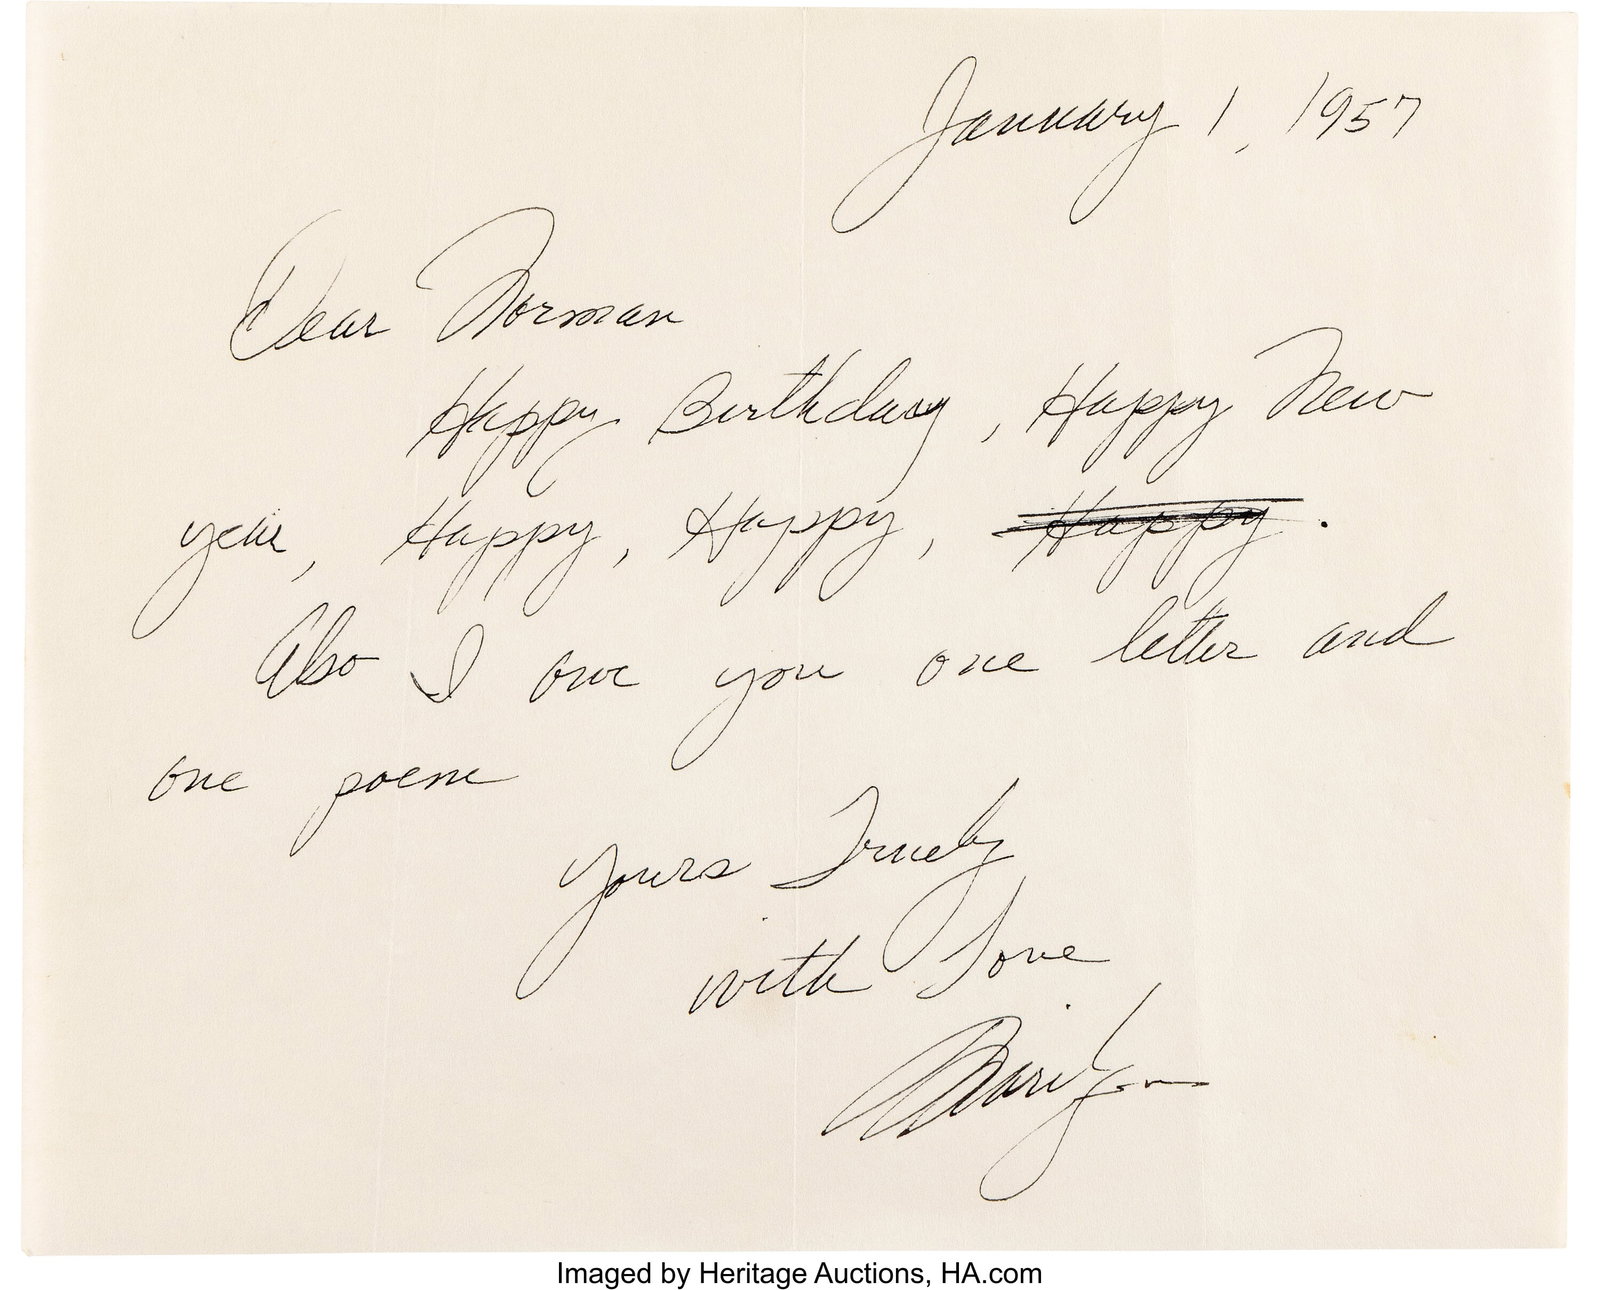 January 1, 1957
Dear Norman
Happy Birthday, Happy New
year, Happy, Happy, Happy.
Also I owe you one letter and
one poem
Yours Truely
with Love
Marilyn
Imaged by Heritage Auctions, HA.com